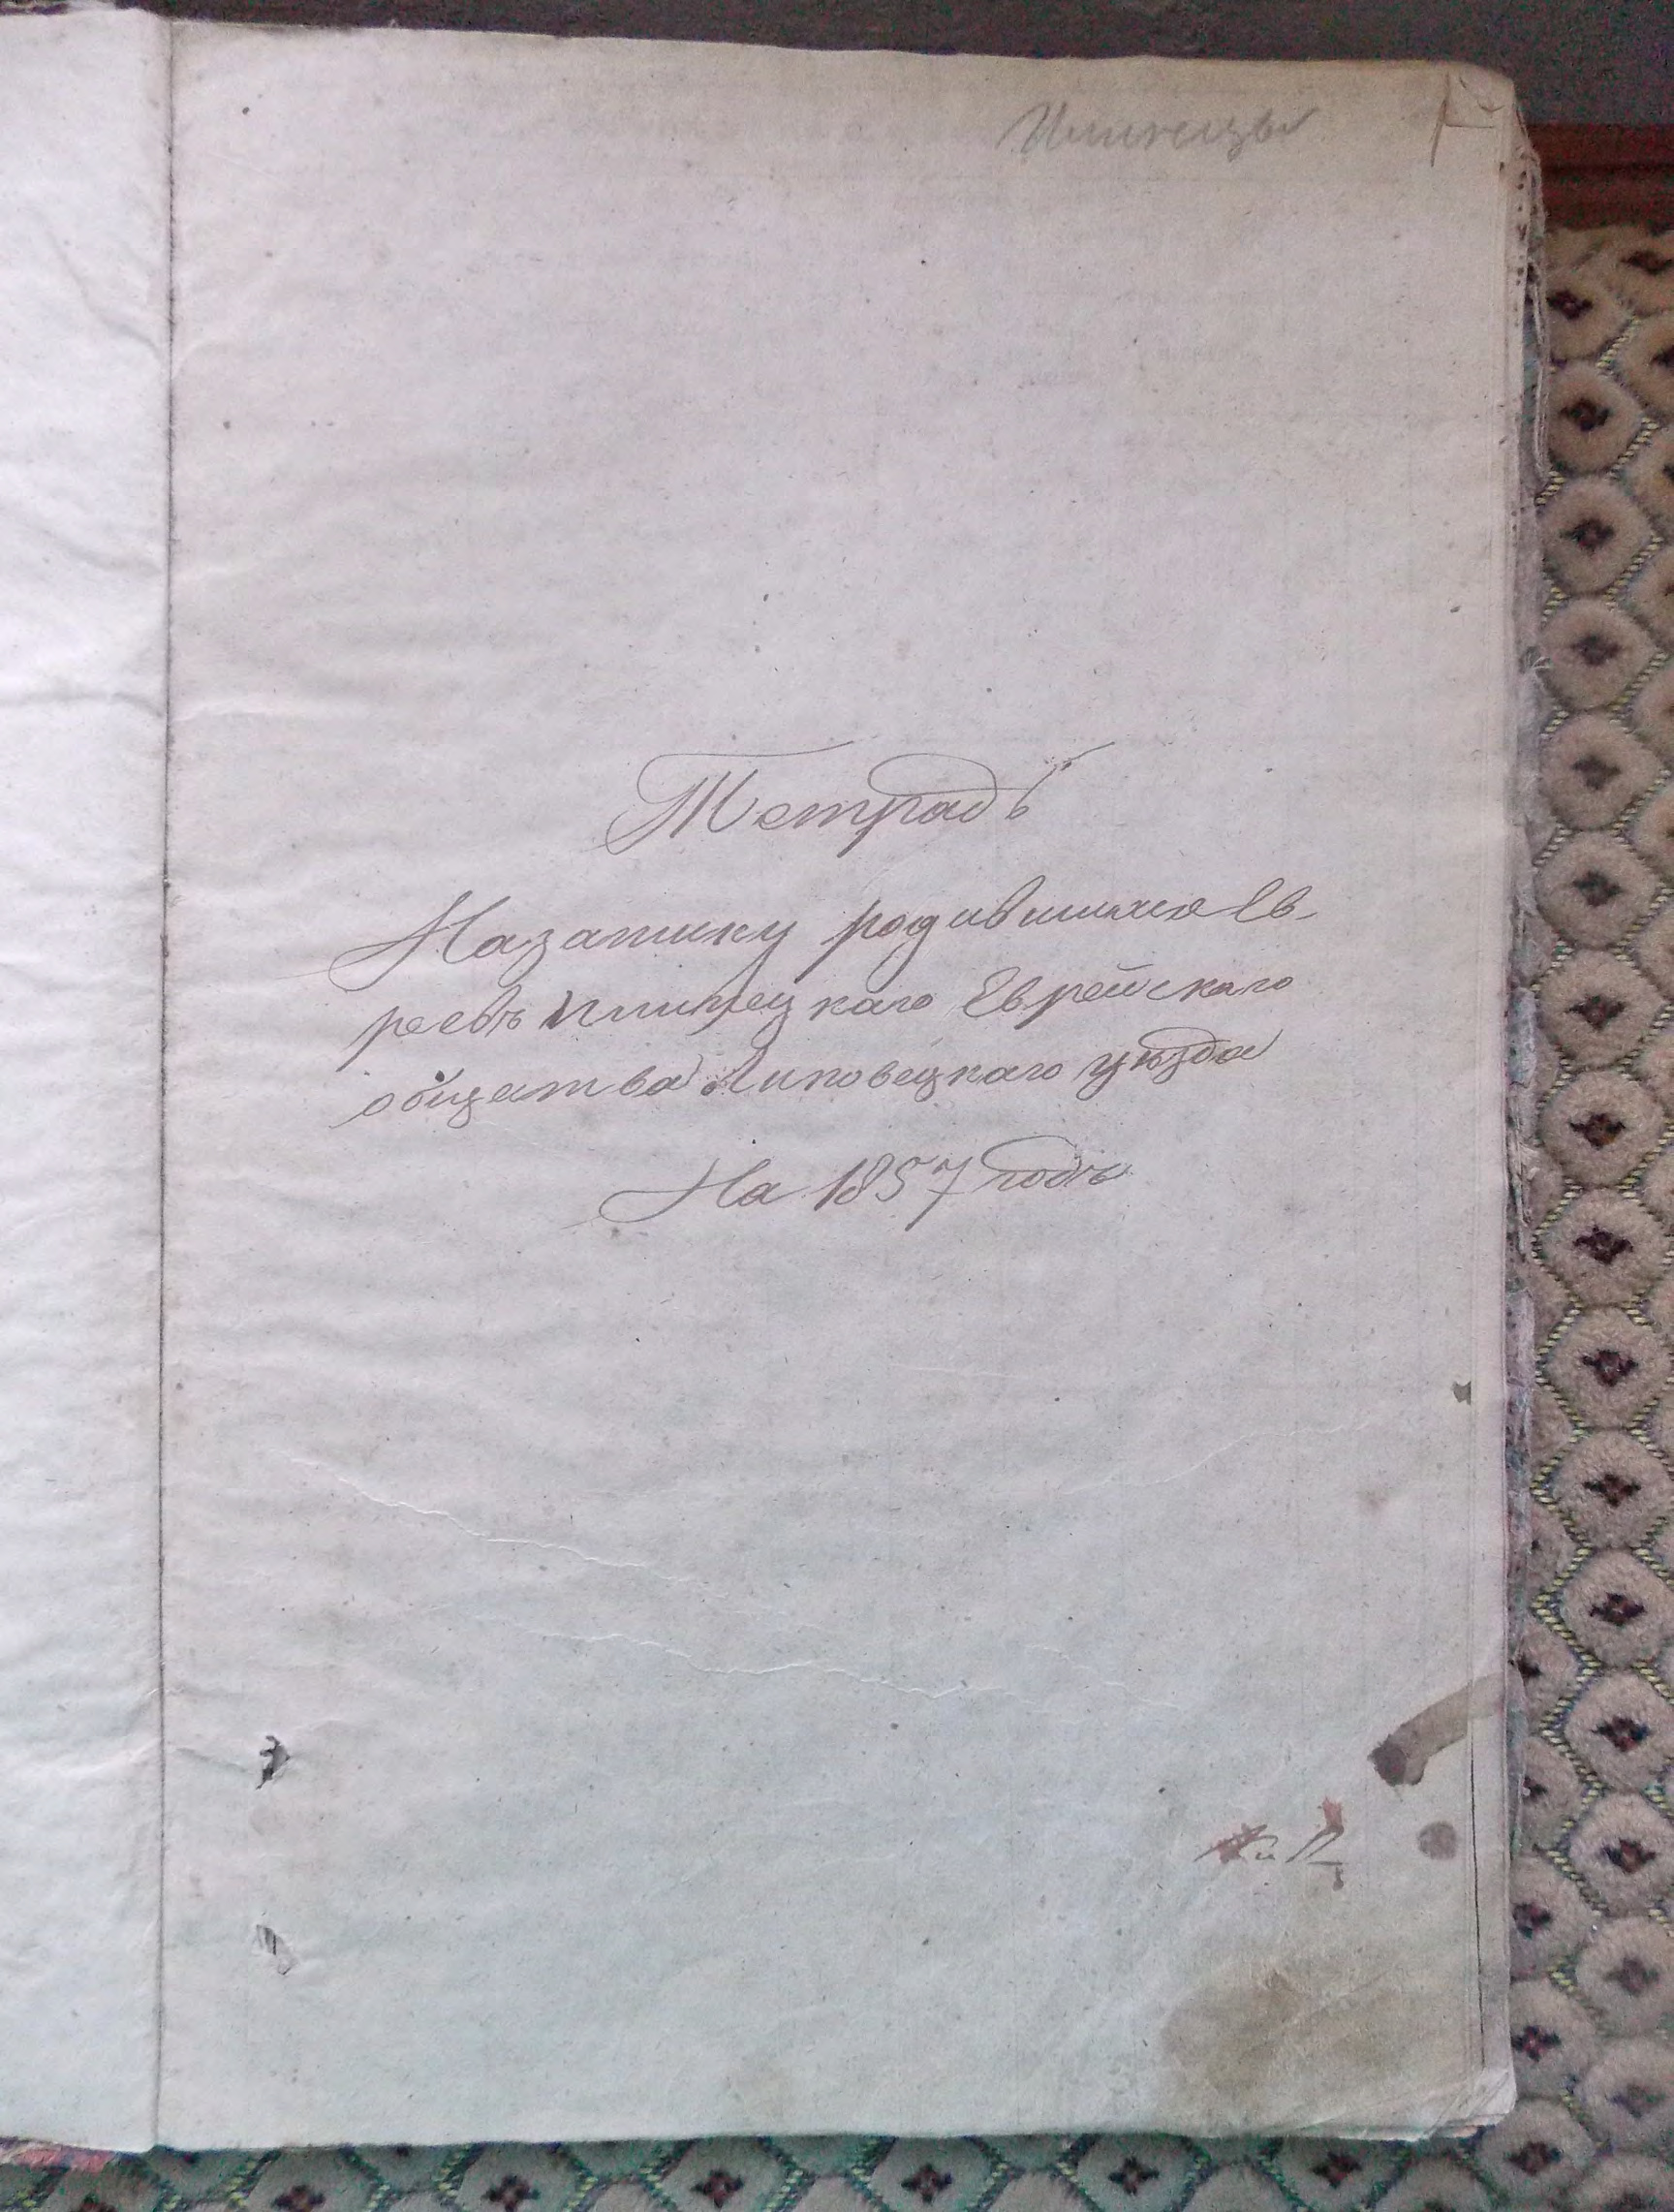 Илинецы
Тетрадь
Назаписку родившихся Ев-
реевъ Илинецкаго Еврейскаго
общества Липовецкаго уѣзда
На 1857 годъ